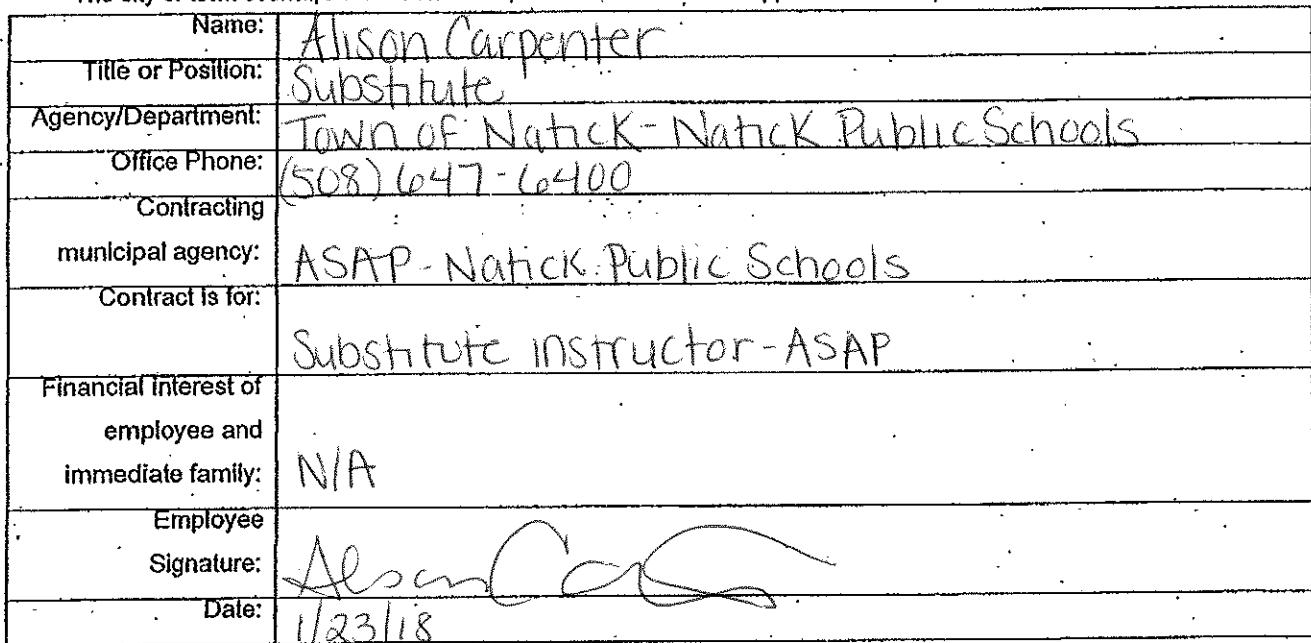 Name: Alison Carpenter
Title or Position: Substitute
Agency/Department: Town of Natick-Natick Public Schools
Office Phone: (508) 647-6400
Contracting
municipal agency: ASAP-Natick Public Schools
Contract is for:
Substitute instructor-ASAP
Financial interest of
employee and
immediate family: N/A
Employee
Signature: Alison Ca
Date: 1/23/18